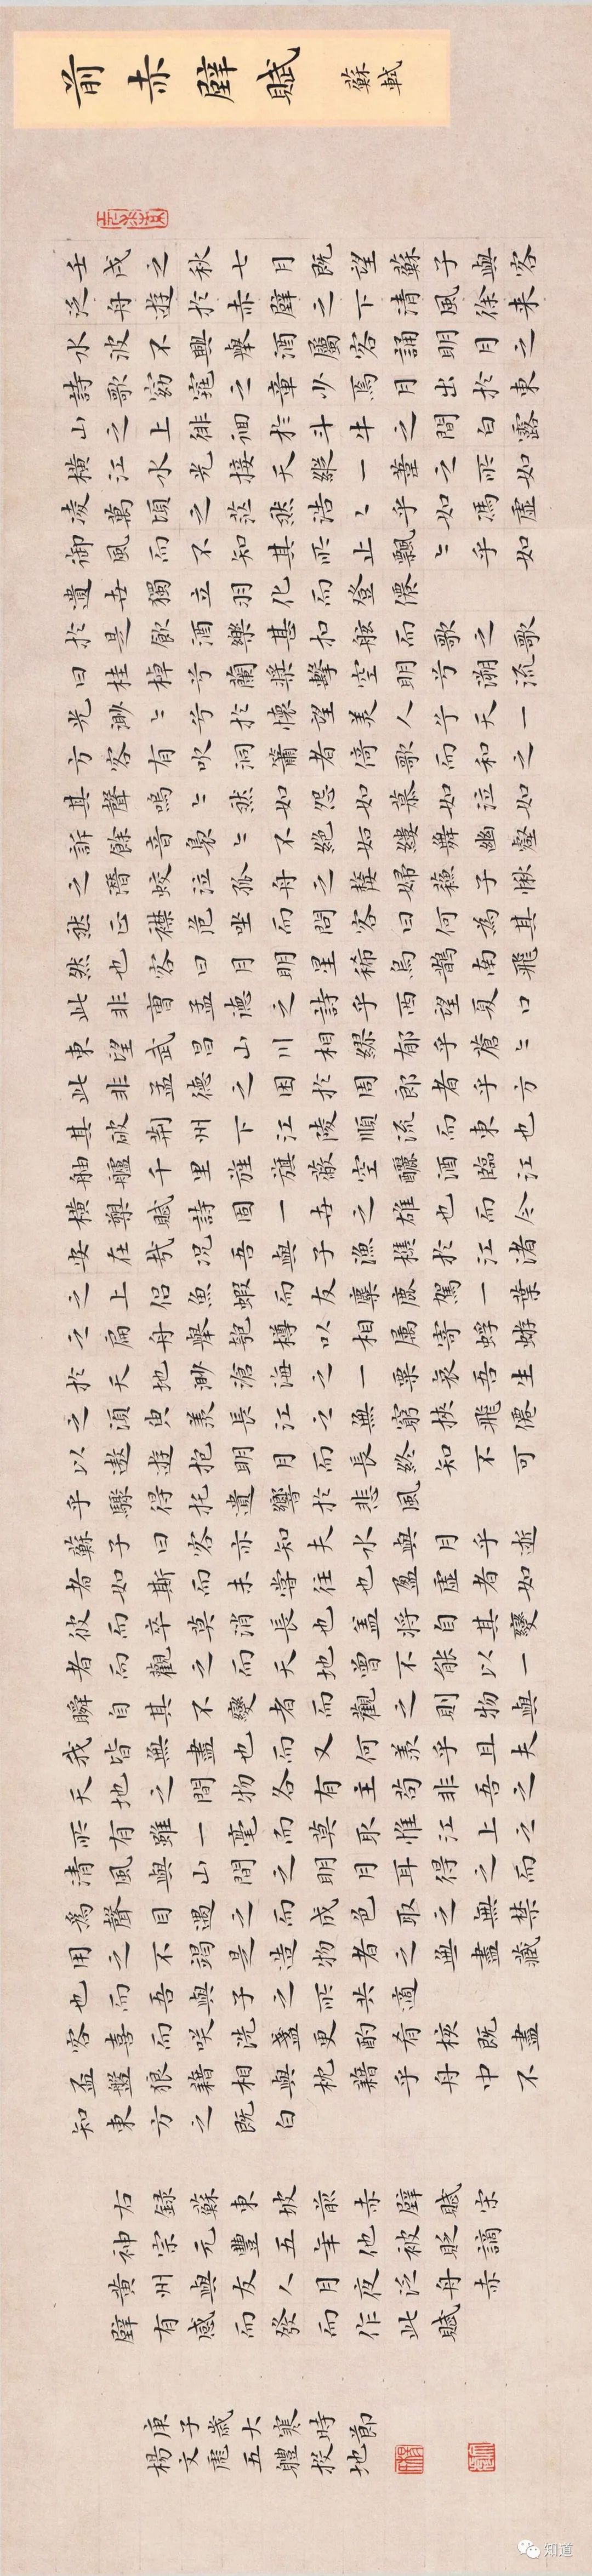 前赤壁賦 蘇軾
壬戌之秋七月既望蘇子與客
泛舟遊於赤壁之下清風徐来
水波不興舉酒屬客誦明月之
詩歌窈窕之章少焉月出於東
山之上徘徊於斗牛之間白露
橫江水光接天縱一葦之所如
凌萬頃之茫然浩〻乎如馮虛
御風而不知其所止飄〻乎如
遺世獨立羽化而登僊
於是飲酒樂甚扣舷而歌之歌
曰桂棹兮蘭槳擊空明兮溯流
光渺〻兮於懷望美人兮天一
方客有吹洞簫者倚歌而和之
其聲嗚〻然如怨如慕如泣如
訴餘音裊〻不絕如縷舞幽壑
之潛蛟泣孤舟之嫠婦蘇子愀
然正襟危坐而問客曰何為其
然也客曰月明星稀烏鵲南飛
此非曹孟德之詩乎西望夏口
東望武昌山川相繆郁乎蒼〻
此非孟德之困於周郎者乎方
其破荊州下江陵順流而東也
舳艫千里旌旗蔽空釃酒臨江
橫槊賦詩固一世之雄也而今
安在哉況吾與子漁樵於江渚
之上侶魚蝦而友麋鹿駕一葉
之扁舟舉匏樽以相屬寄蜉蝣
於天地渺滄海之一粟哀吾生
之須臾羨長江之無窮挾飛僊
以遨遊抱明月而長終知不可
乎驟得托遺響於悲風
蘇子曰客亦知夫水與月乎逝
者如斯而未嘗往也盈虛者如
彼而卒莫消長也盖將自其變
者而觀之而天地曾不能以一
瞬自其不變者而觀之則物與
我皆無盡也而又何羨乎且夫
天地之間物各有主苟非吾之
所有雖一毫而莫取惟江上之
清風與山間之明月耳得之而
為聲目遇之而成色取之無禁
用之不竭是造物者之無盡藏
也而吾與子之所共適
客喜而咲洗盞更酌肴核既盡
盃盤狼藉相與枕藉乎舟中不
知東方之既白
右錄蘇東坡前赤壁賦宋
神宗元豐五年他被貶謫
黃州與友人月夜泛舟赤
壁有感而發而作此賦
庚子歲大寒時節
楊文虎五體投地
知道